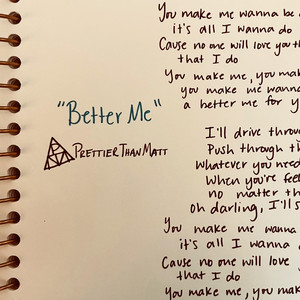 "Better Me"
PrettierThanMatt
You make me wanna be
it's all I wanna do
Cause no one will love you
that I do
You make me, you
you make me
a better me for
I'll drive
Push through
Whatever you need
When you're
no matter
oh darling, I'll
You make me wanna
it's all I wanna
Cause no one will love
that I do
You make me, you